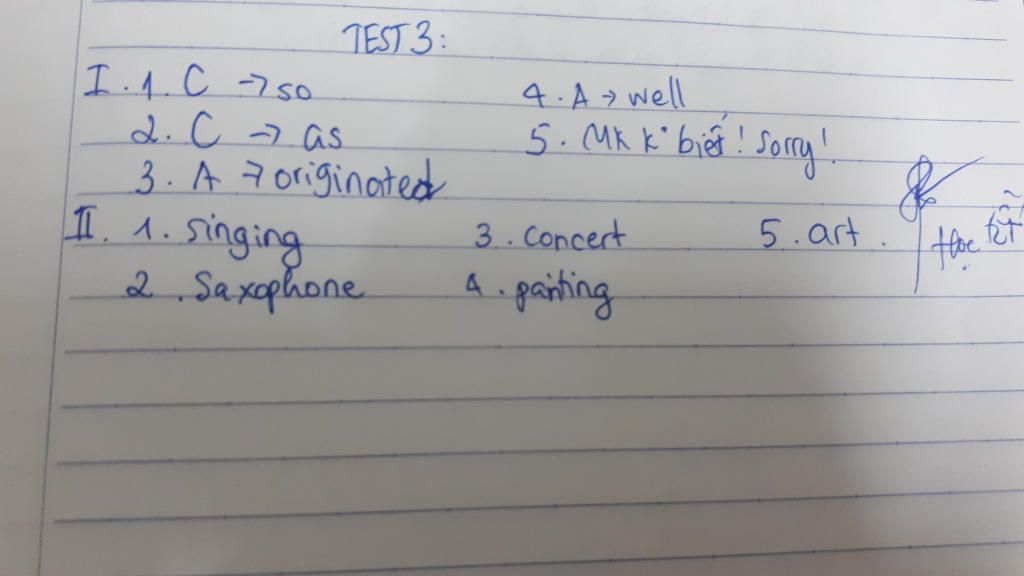 TEST 3:
I. 1. C → so 4. A → well
2. C → as 5. Mk k° biết! Sorry!
3. A → originated
II. 1. singing 3. concert 5. art.
2. Saxophone 4. painting
học tốt